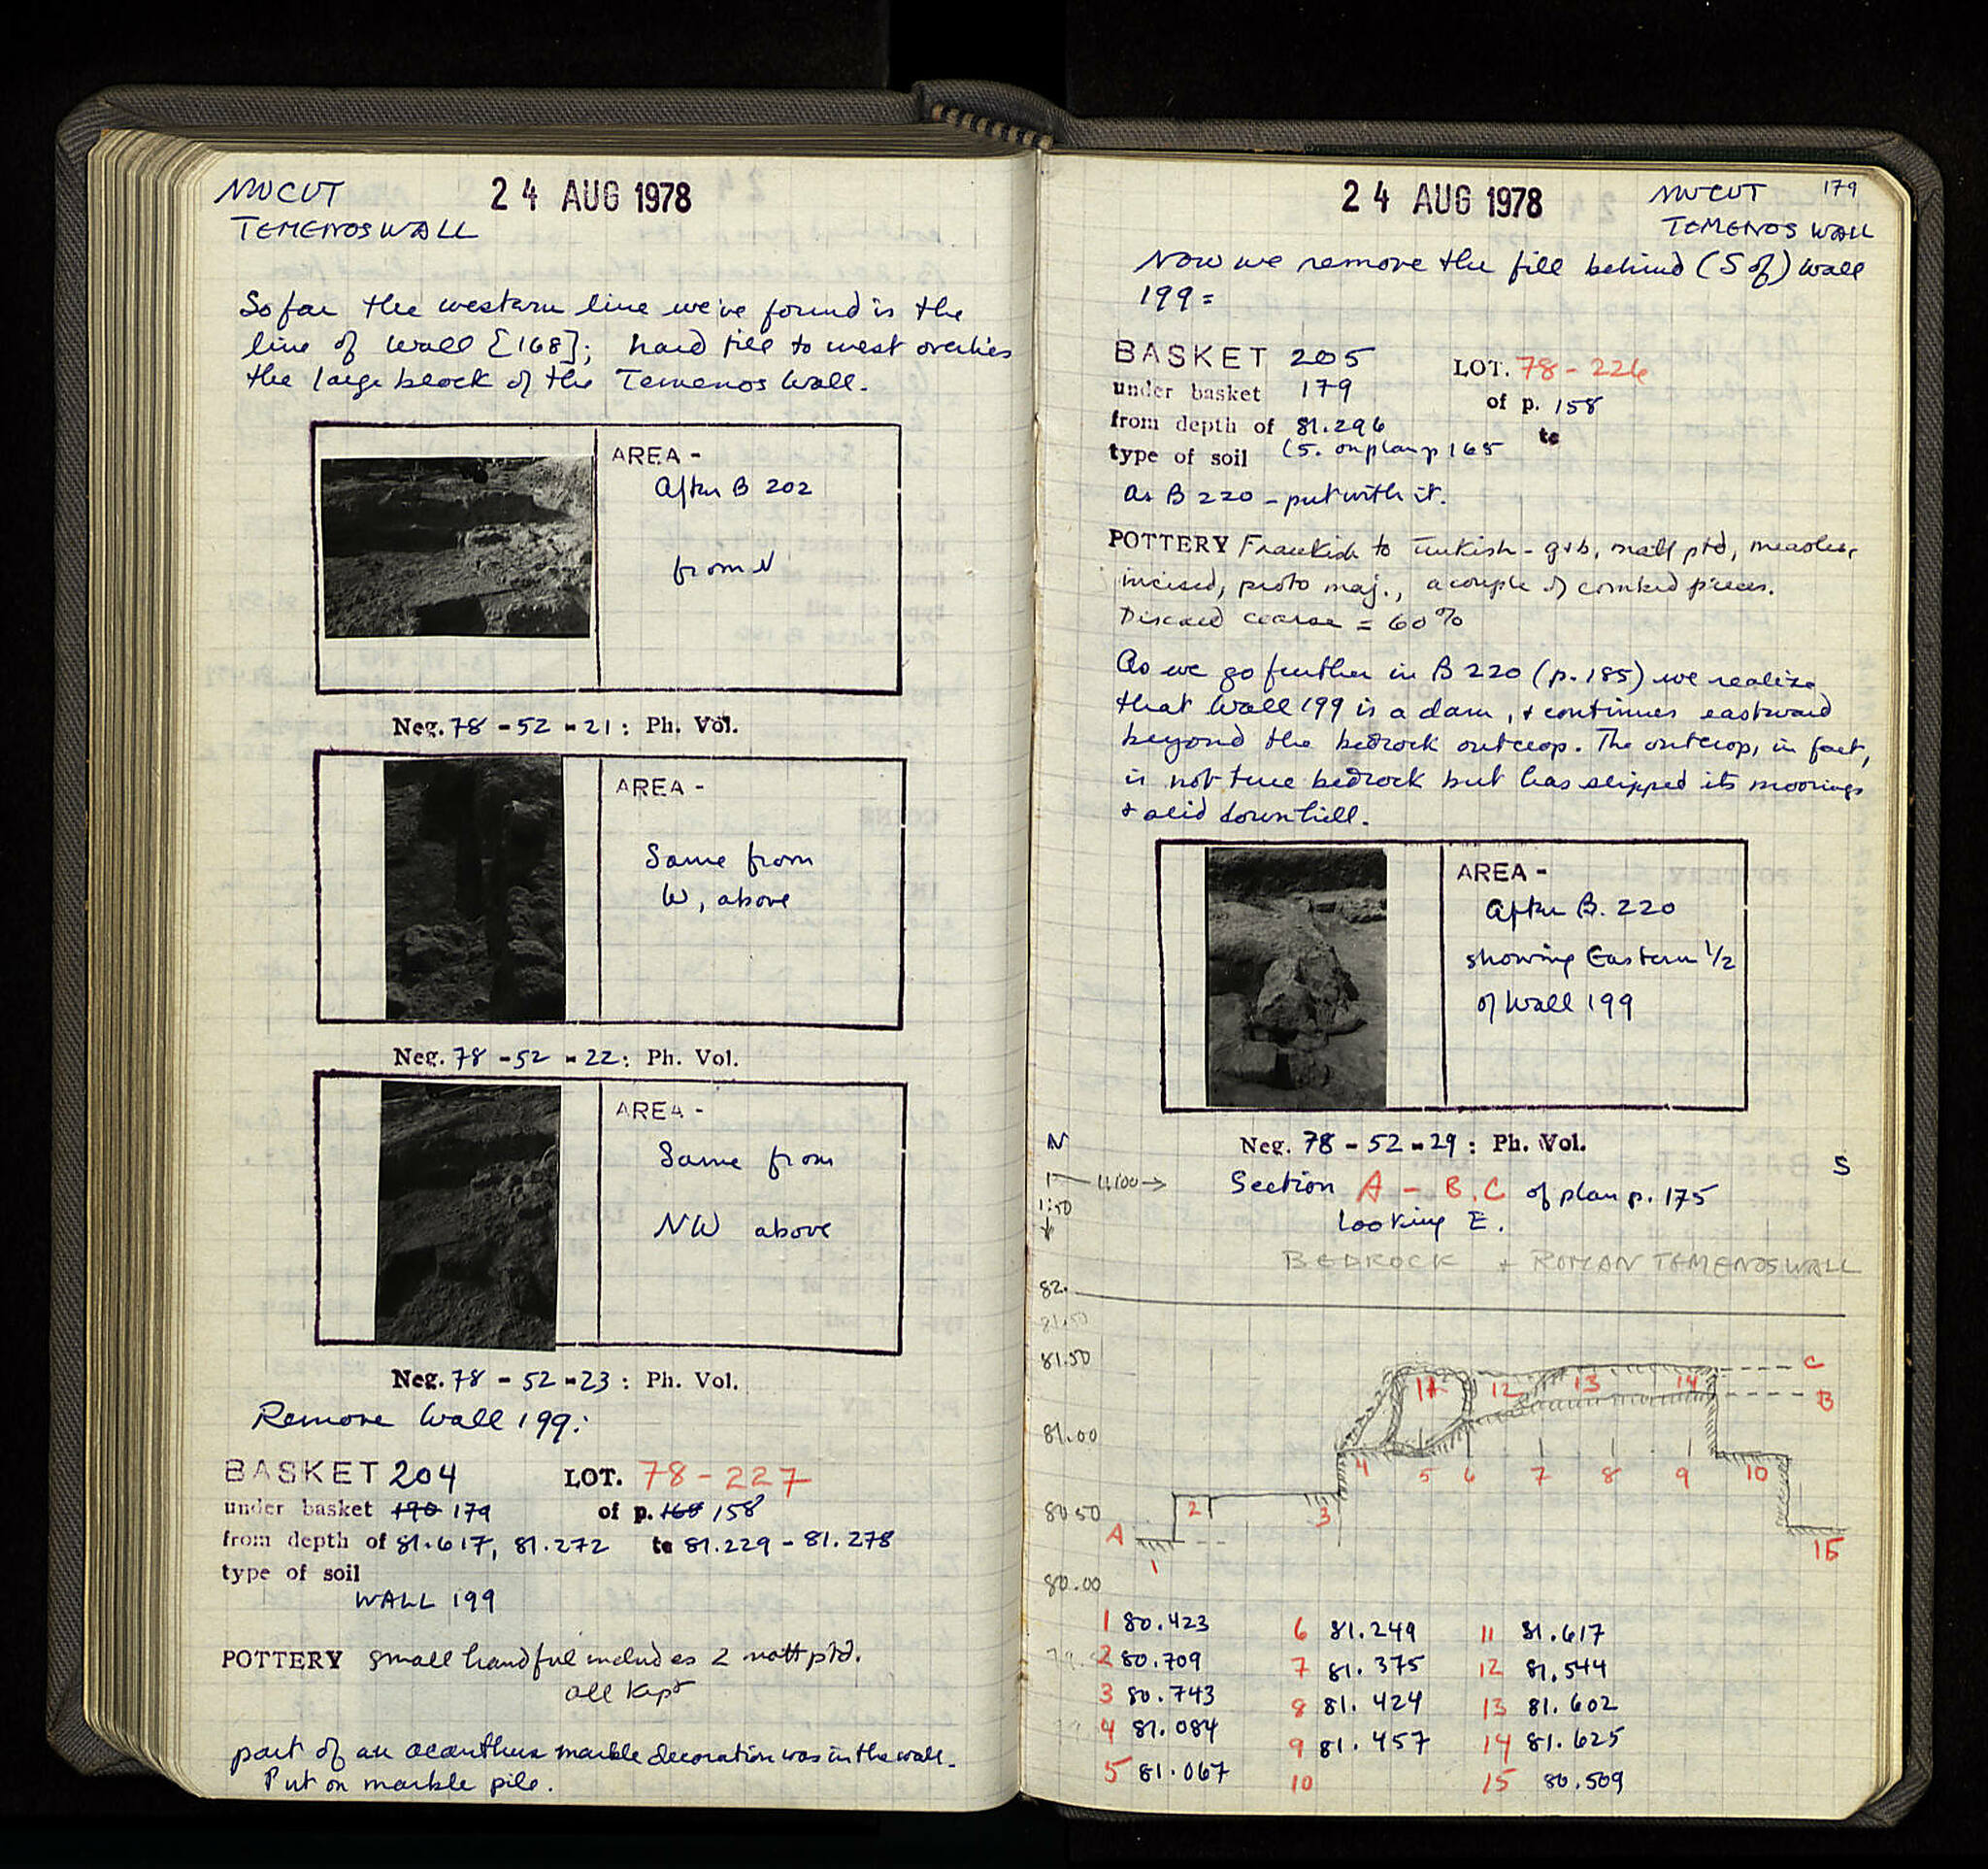 NW CUT
TEMENOS WALL
24 AUG 1978
So far the western line we've found is the
line of wall [168]; hard fill to west overlies
the large block of the Temenos Wall.
AREA -
After B 202
from N
Neg. 78 - 52 - 21 : Ph. Vol.
AREA -
Same from
W, above
Neg. 78 - 52 - 22 : Ph. Vol.
AREA -
Same from
NW above
Neg. 78 - 52 - 23 : Ph. Vol.
Remove Wall 199:
BASKET 204 LOT. 78 - 227
under basket 190 179 of p. 168 158
from depth of 81.617, 81.272 to 81.229 - 81.278
type of soil
WALL 199
POTTERY small handful includes 2 matt ptd.
all kept
part of an acanthus marble decoration was in the wall.
Put on marble pile.
24 AUG 1978
NW CUT 179
TEMENOS WALL
Now we remove the fill behind (S of) wall
199 =
BASKET 205 LOT. 78 - 226
under basket 179 of p. 158
from depth of 81.296 to
type of soil (5. on plan p 165
As B 220 - put with it.
POTTERY Frankish to Turkish - g+b, matt ptd, measles,
incised, proto maj., a couple of combed pieces.
Discard coarse = 60%
As we go further in B 220 (p. 185) we realize
that Wall 199 is a dam, + continues eastward
beyond the bedrock outcrop. The outcrop, in fact,
is not true bedrock but has slipped its moorings
+ slid downhill.
AREA -
After B. 220
showing Eastern 1/2
of Wall 199
Neg. 78 - 52 - 29 : Ph. Vol.
N
S
1:100 →
1:50
Section A - B.C of plan p. 175
looking E.
BEDROCK + ROMAN TEMENOS WALL
82.
81.50
81.50
81.00
80.50
80.00
A
1 2 3 4 5 6 7 8 9 10
11 12 13 14
C
B
15
1 80.423 6 81.249 11 81.617
2 80.709 7 81.375 12 81.544
3 80.743 8 81.424 13 81.602
4 81.084 9 81.457 14 81.625
5 81.067 10 15 80.509